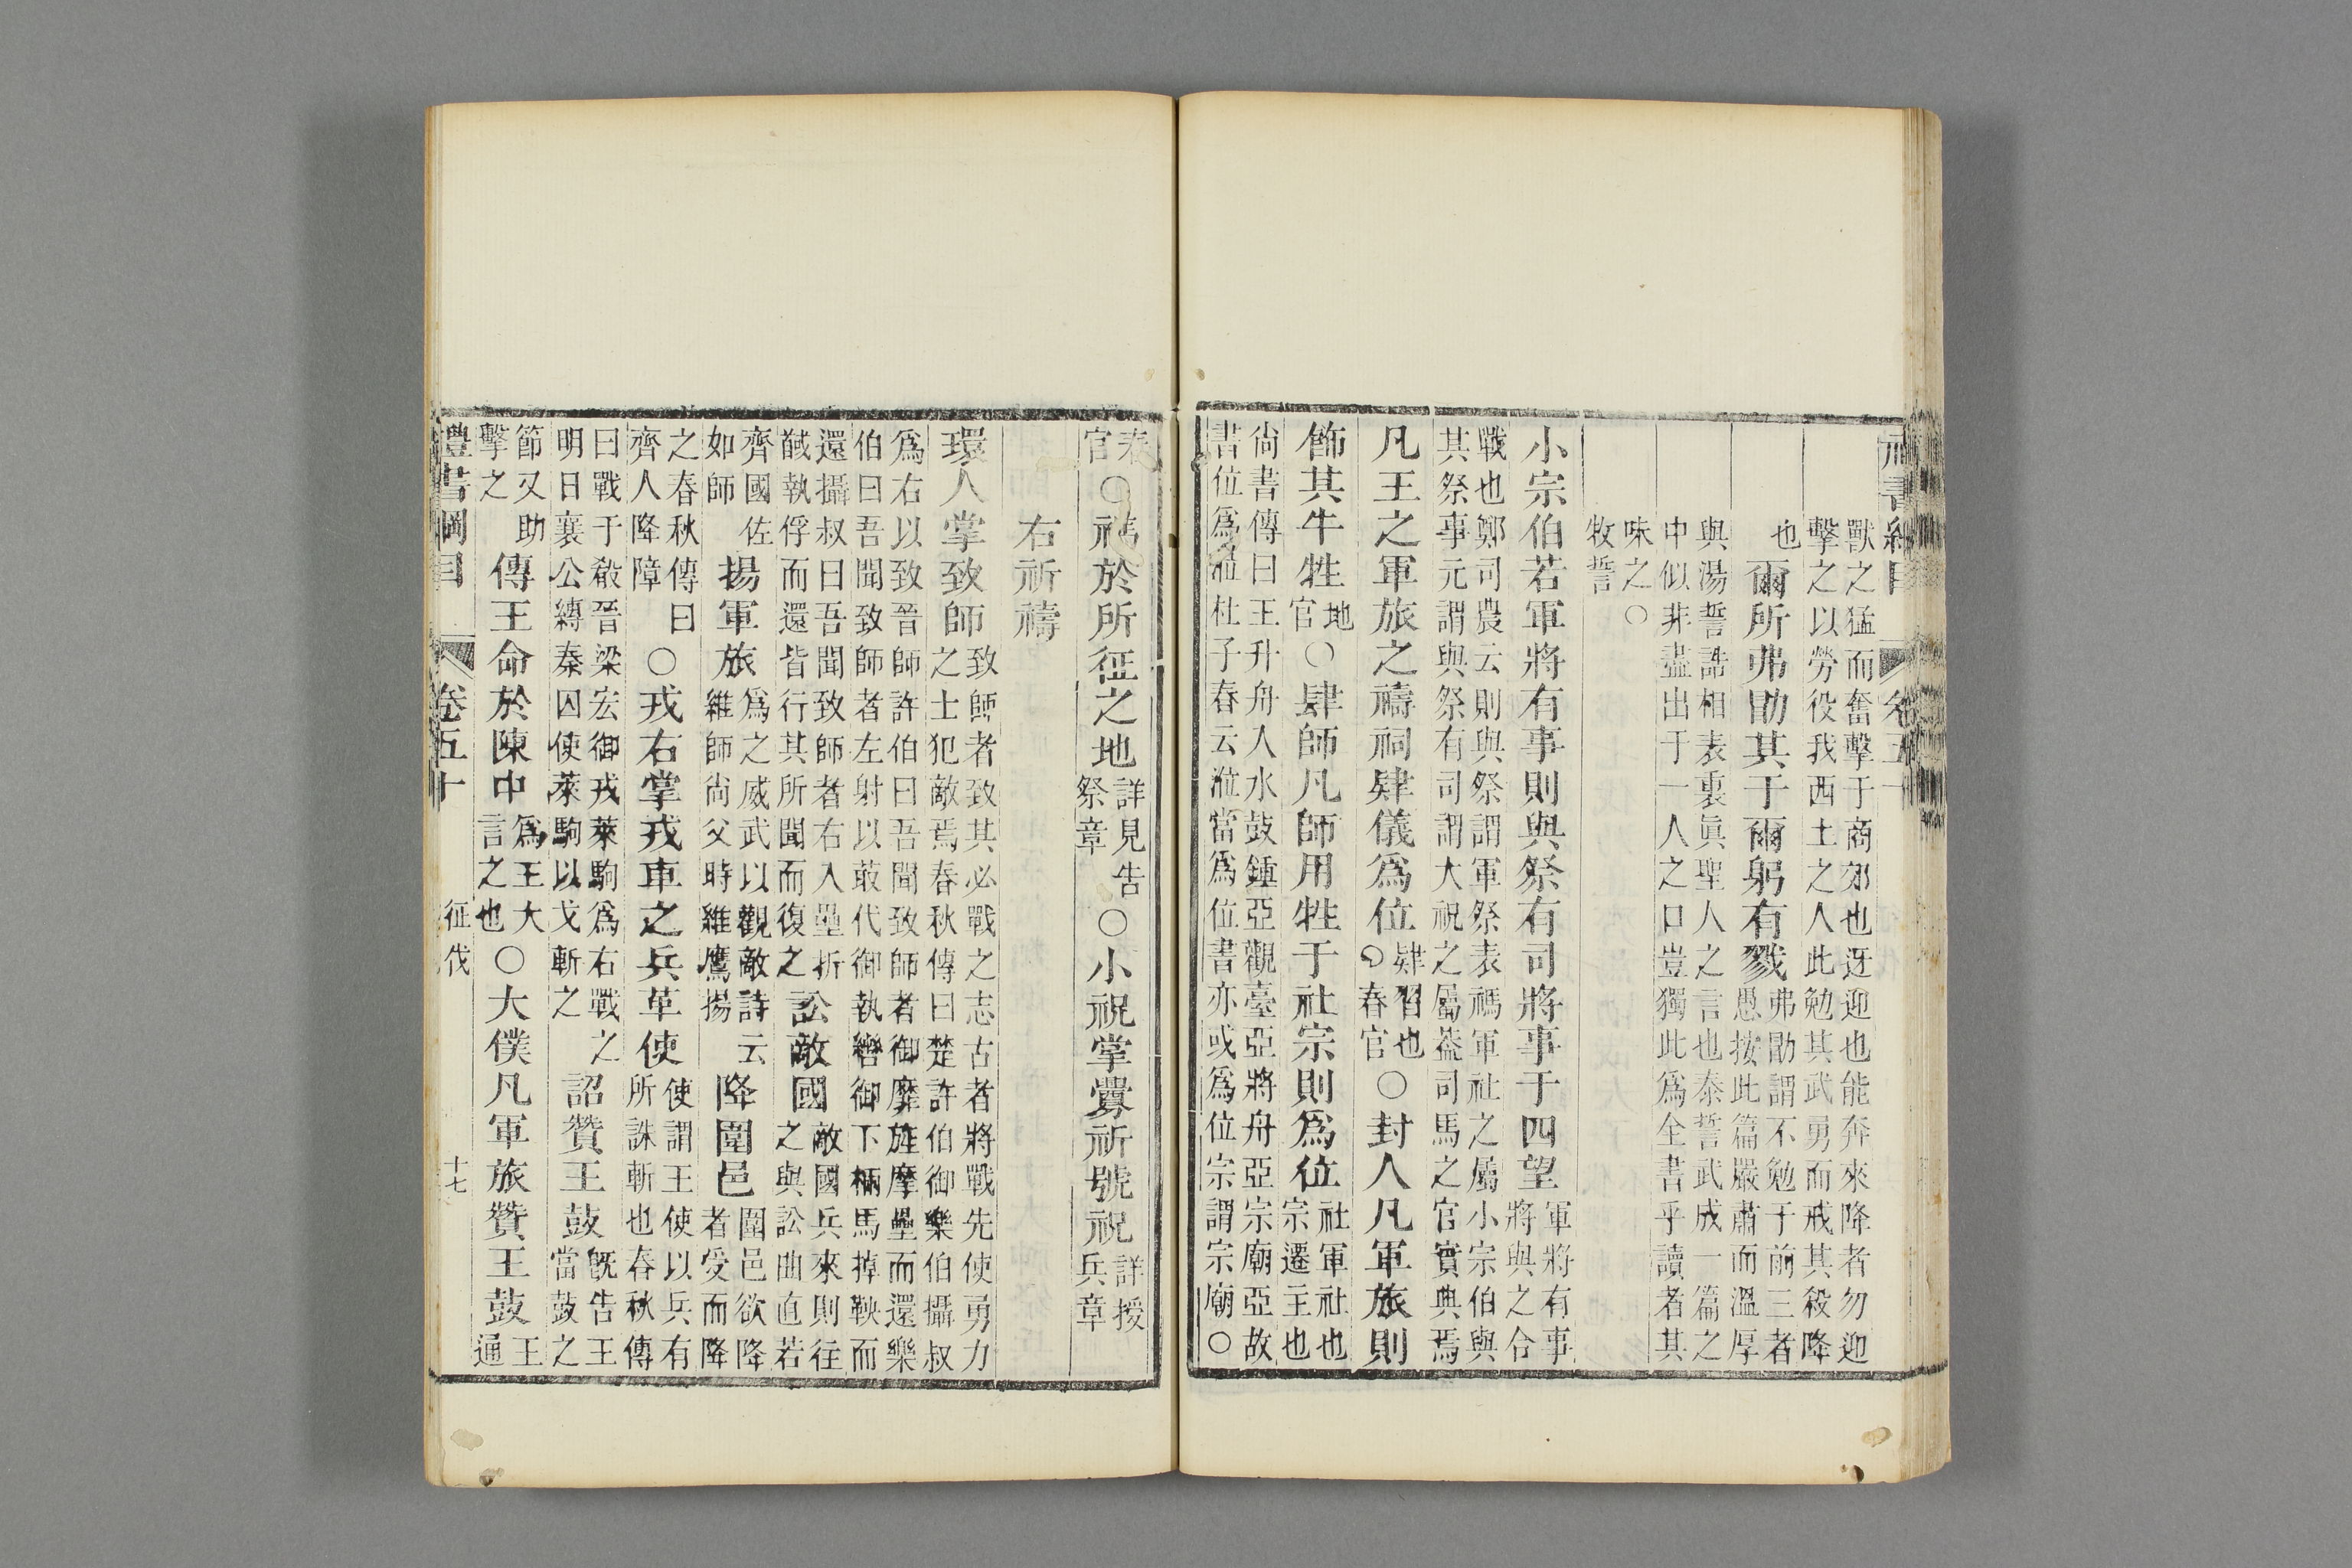 禮書綱目 卷五十
獸之猛而奮擊于商郊也迓迎也能奔來降者勿迎
擊之以勞役我西土之人此勉其武勇而戒其殺降
也爾所弗勖其于爾躬有戮弗勖謂不勉于前三者愚按此篇嚴肅而溫厚
與湯誓誥相表裏眞聖人之言也泰誓武成一篇之
中似非盡出于一人之口豈獨此爲全書乎讀者其
味之○
牧誓
小宗伯若軍將有事則與祭有司將事于四望軍將有事將與之合
戰也鄭司農云則與祭謂軍祭表禡軍社之屬小宗伯與
其祭事元謂與祭有司謂大祝之屬蓋司馬之官實典焉
凡王之軍旅之禱祠肄儀爲位肄習也○春官○封人凡軍旅則
飾其牛牲地官○肆師凡師用牲于社宗則爲位社軍社也宗遷主也
尙書傳曰王升舟入水鼓鍾亞觀臺亞將舟亞宗廟亞故
書位爲涖杜子春云涖當爲位書亦或爲位宗謂宗廟○
春官○禡於所征之地詳見告祭章○小祝掌釁祈號祝詳授兵章
右祈禱
環人掌致師致師者致其必戰之志古者將戰先使勇力之士犯敵焉春秋傳曰楚許伯御樂伯攝叔
爲右以致晉師許伯曰吾聞致師者御靡旌摩壘而還樂
伯曰吾聞致師者左射以菆代御執轡御下㭪馬掉鞅而
還攝叔曰吾聞致師者右入壘折馘執俘而還皆行其所聞而復之訟敵國敵國兵來則往之與訟曲直若
齊國佐如師揚軍旅爲之威武以觀敵詩云維師尙父時維鷹揚降圍邑圍邑欲降者受而降
之春秋傳曰齊人降障○戎右掌戎車之兵革使使謂王使以兵有所誅斬也春秋傳
曰戰于殽晉梁宏御戎萊駒爲右戰之明日襄公縛秦囚使萊駒以戈斬之詔贊王鼓旣告王當鼓之
節又助擊之傳王命於陳中爲王大言之也○大僕凡軍旅贊王鼓王通
禮書綱目 卷五十 征伐 十七